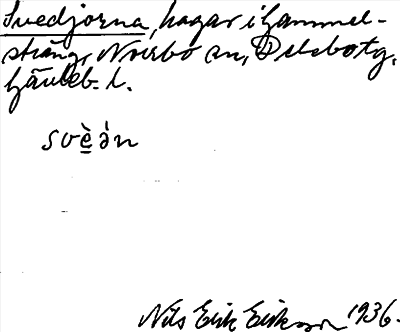 Svedjorna, hagar i Gammel-
sträng, Norrbo sn, Delsbo tg,
Gävleb. l.
svè̱ə̀n
Nils Erik Eriksson 1936.